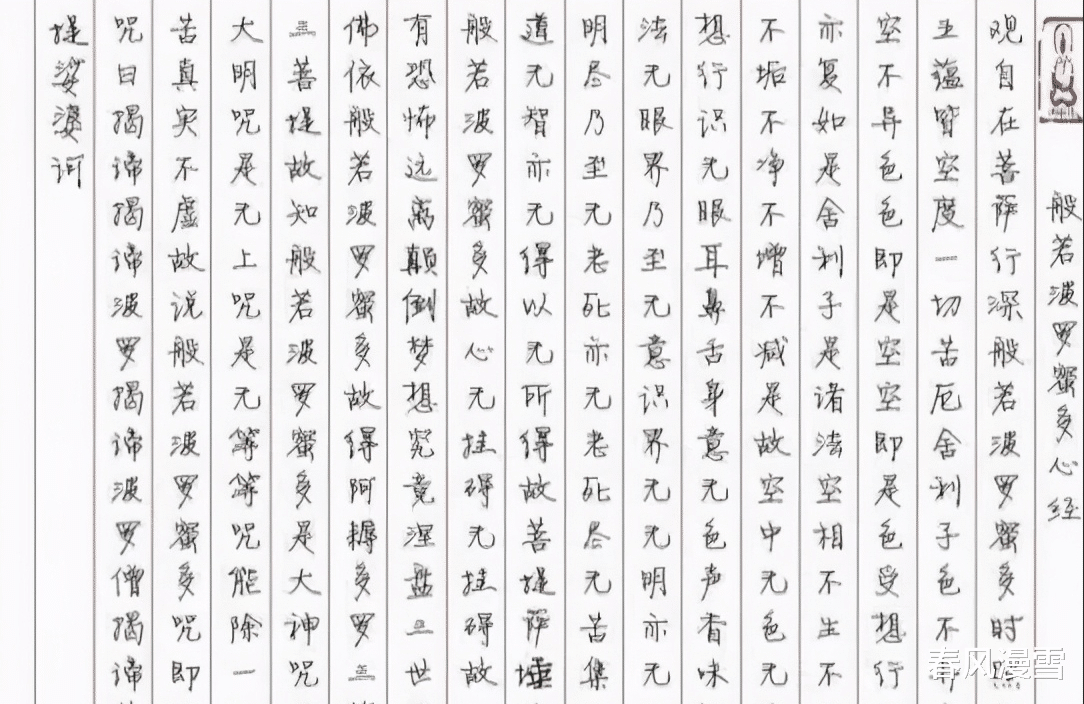 般若波罗蜜多心经
观自在菩萨行深般若波罗蜜多时照
五蕴皆空度一切苦厄舍利子色不异
空不异色色即是空空即是色受想行
亦复如是舍利子是诸法空相不生不
不垢不净不增不减是故空中无色无
想行识无眼耳鼻舌身意无色声香味
法无眼界乃至无意识界无无明亦无
明尽乃至无老死亦无老死尽无苦集
道无智亦无得以无所得故菩提萨埵
般若波罗蜜多故心无挂碍无挂碍故
有恐怖远离颠倒梦想究竟涅盘三世
佛依般若波罗蜜多故得阿耨多罗三
三菩提故知般若波罗蜜多是大神咒
大明咒是无上咒是无等等咒能除一
苦真实不虚故说般若波罗蜜多咒即
咒曰揭谛揭谛波罗揭谛波罗僧揭谛
提娑婆诃
春风漫雪